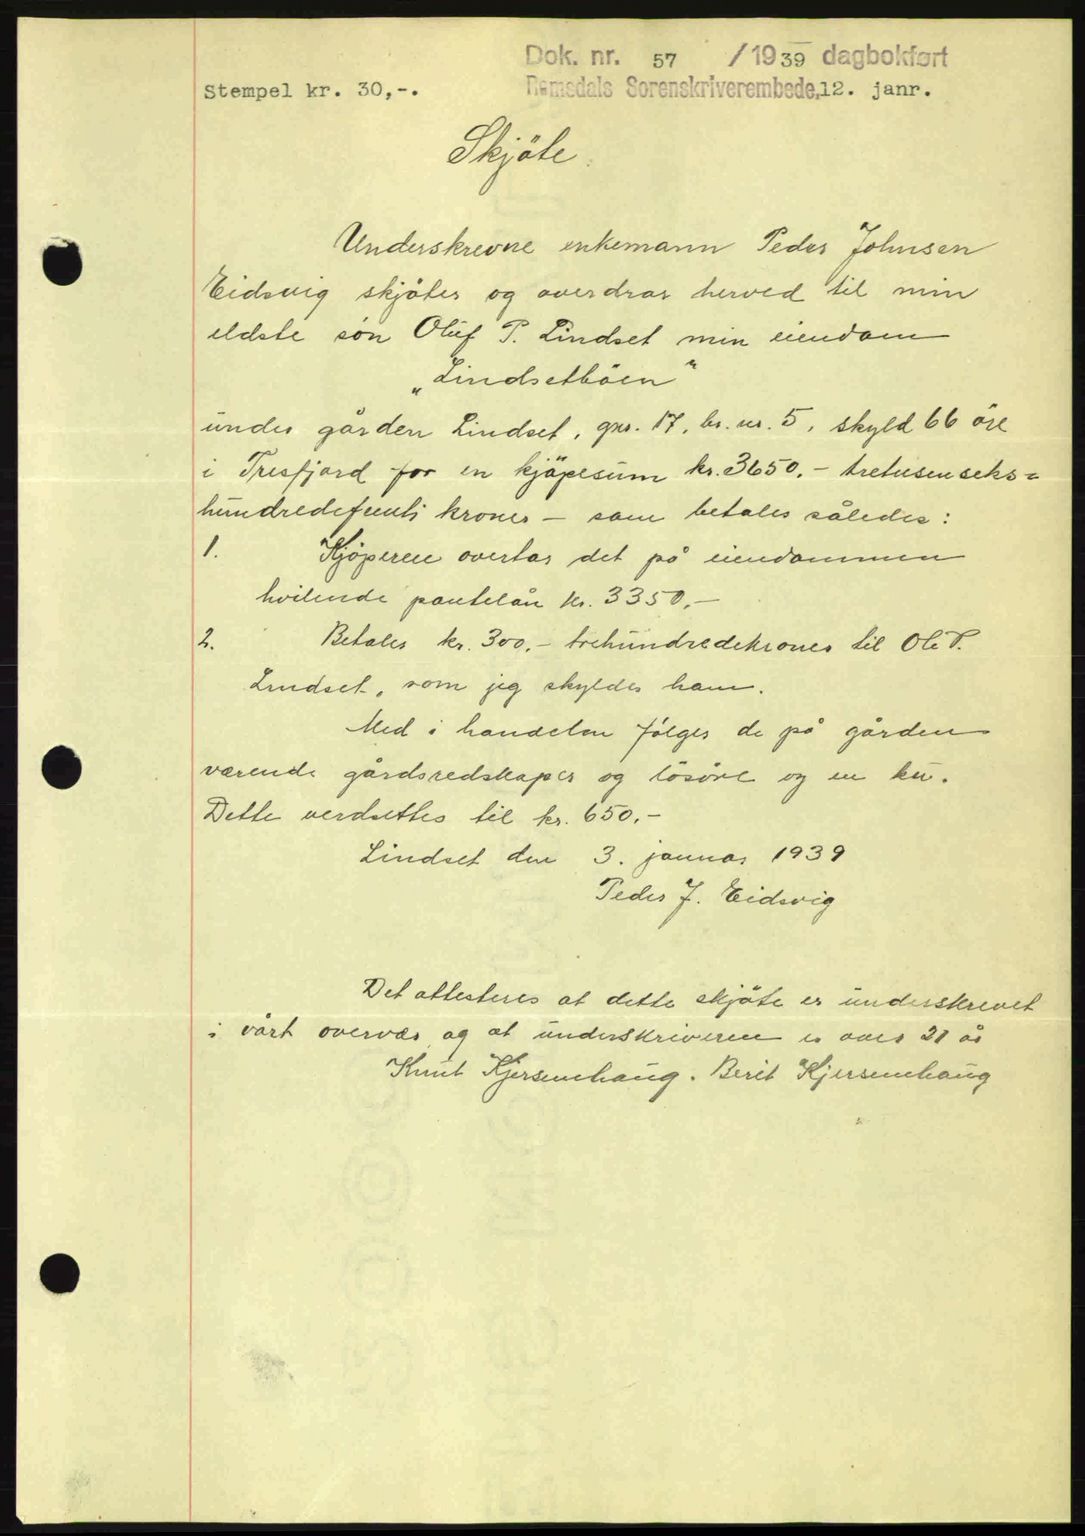 Dok. nr. 57 / 1939 dagbokført
Stempel kr. 30,-. Romsdals Sorenskriverembede, 12. janr.
Skjöte.
Underskrevne enkemann Peder Johnsen
Eidsvig skjöter og overdrar herved til min
eldste sön Oluf P. Lindset min eiendom
„Lindsetböen”
under gården Lindset, gnr. 17, br. nr. 5, skyld 66 öre
i Tresfjord for en kjöpesum kr. 3650.- tretusenseks=
hundredefemti kroner - som betales således:
1. Kjöperen overtar det på eiendommen
hvilende pantelån kr. 3350.-
2. Betales kr. 300.- trehundredekroner til Ole P.
Lindset, som jeg skylder ham.
Med i handelen fölger de på gården
værende gårdsredskaper og lösöre og en ku.
Dette verdsettes til kr. 650.-
Lindset den 3. januar 1939
Peder J. Eidsvig
Det attesteres at dette skjöte er underskrevet
i vårt overvær og at underskriveren er over 21 år
Knut Kjersemhaug. Berit Kjersemhaug